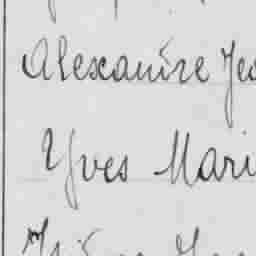 Alexandre Jea
Yves Mari